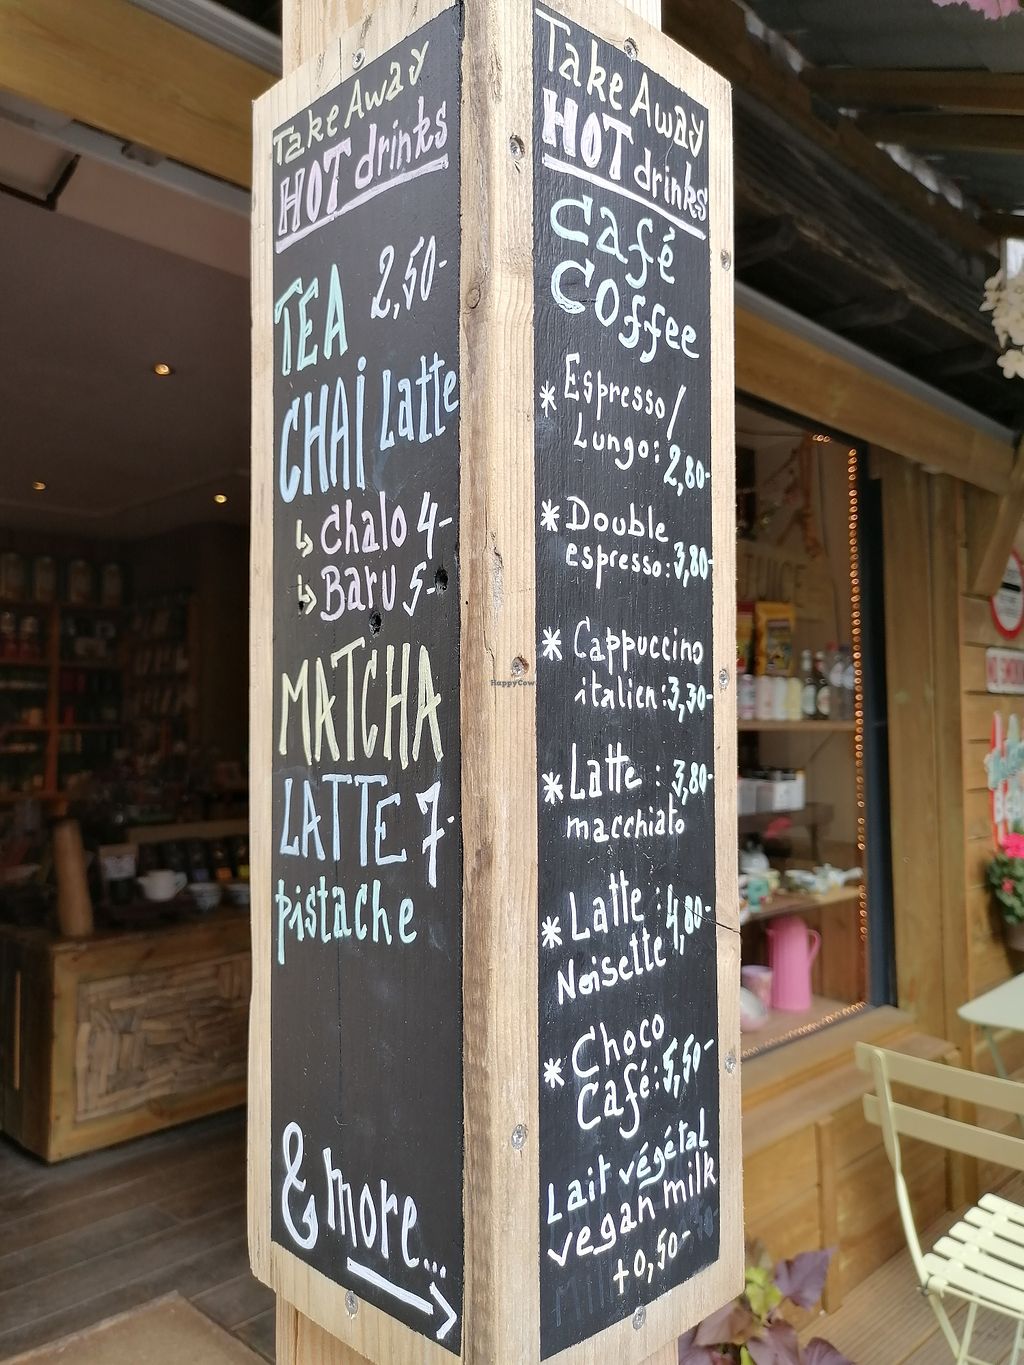 Take Away
HOT drinks
TEA 2,50-
CHAI Latte
↳ Chalo 4-
↳ Baru 5-
MATCHA
LATTE 7-
pistache
& more...
Take Away
HOT drinks
Café
Coffee
* Espresso/
Lungo: 2,80-
* Double
espresso: 3,80-
* Cappuccino
italien: 3,30-
* Latte : 3,80-
macchiato
* Latte : 4,80-
Noisette
* Choco
Café: 5,50-
Lait végétal
vegan milk
+0,50-
HappyCow